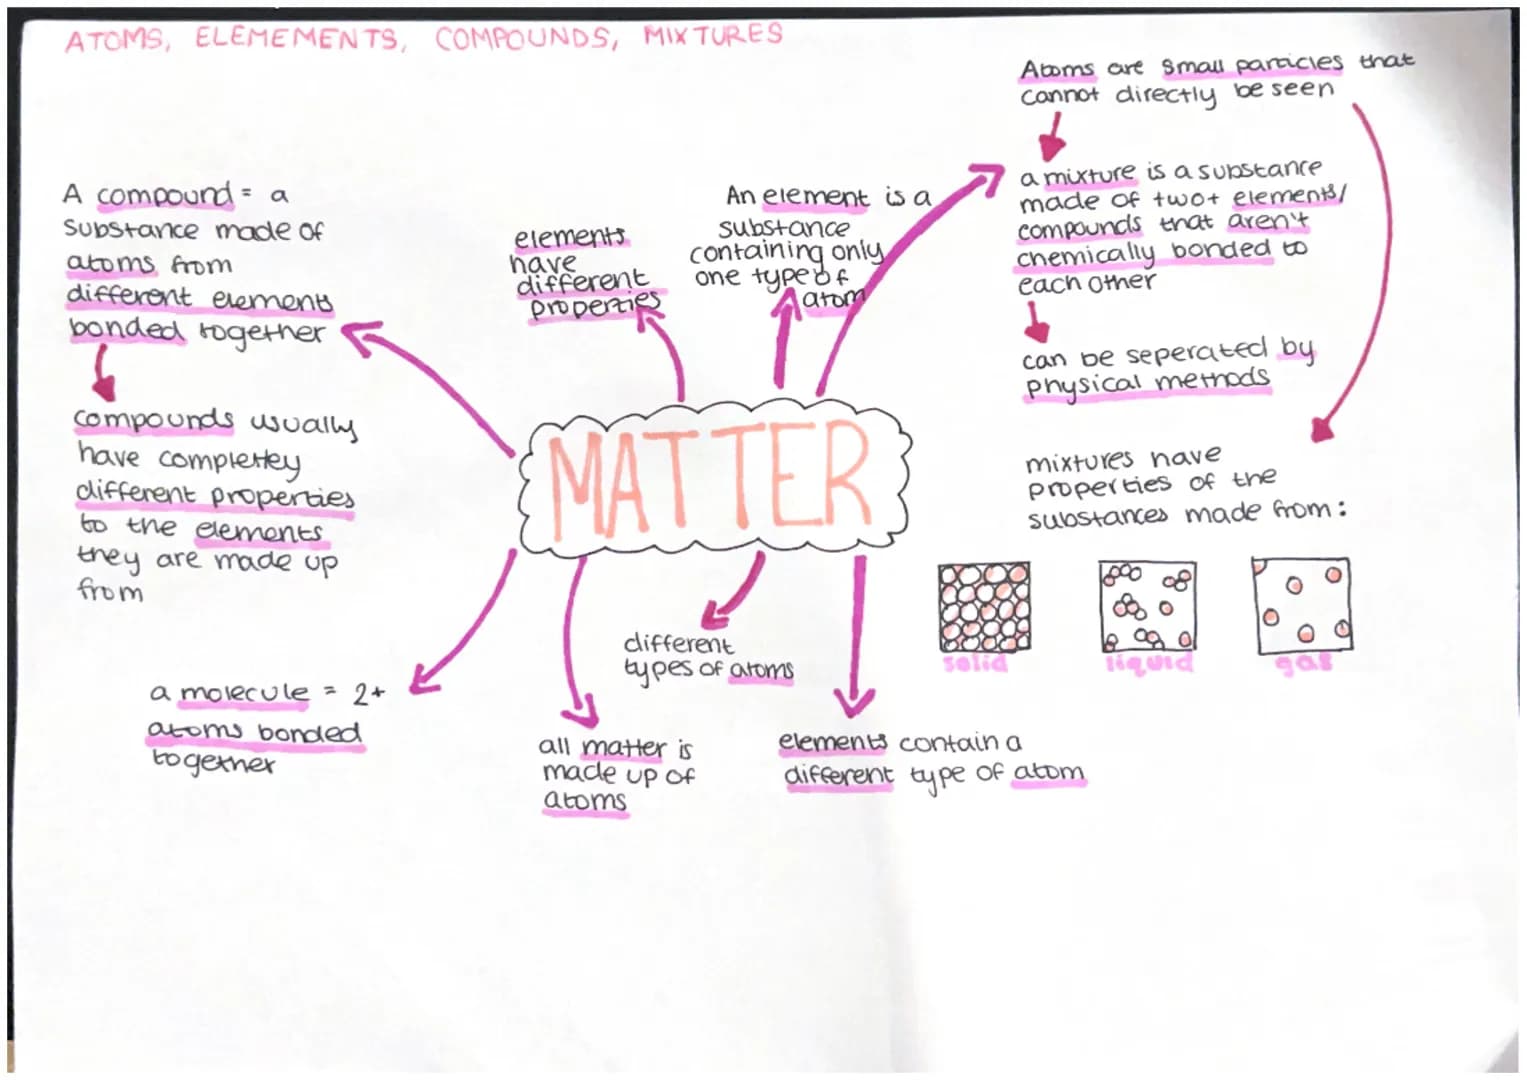 ATOMS, ELEMEMENTS, COMPOUNDS, MIXTURES
Atoms are small particles that
cannot directly be seen
a mixture is a substance
made of two+ elements/
compounds that aren't
chemically bonded to
each other
can be seperated by
physical methods
mixtures have
properties of the
substances made from:
solid
liquid
gas
An element is a
substance
containing only
one type of
atom
elements
have
different
properties
A compound = a
substance made of
atoms from
different element
bonded together
compounds usually
have completley
different properties
to the elements
they are made up
from
MATTER
a molecule = 2+
atoms bonded
together
all matter is
made up of
atoms
different
types of atoms
elements contain a
different type of atom